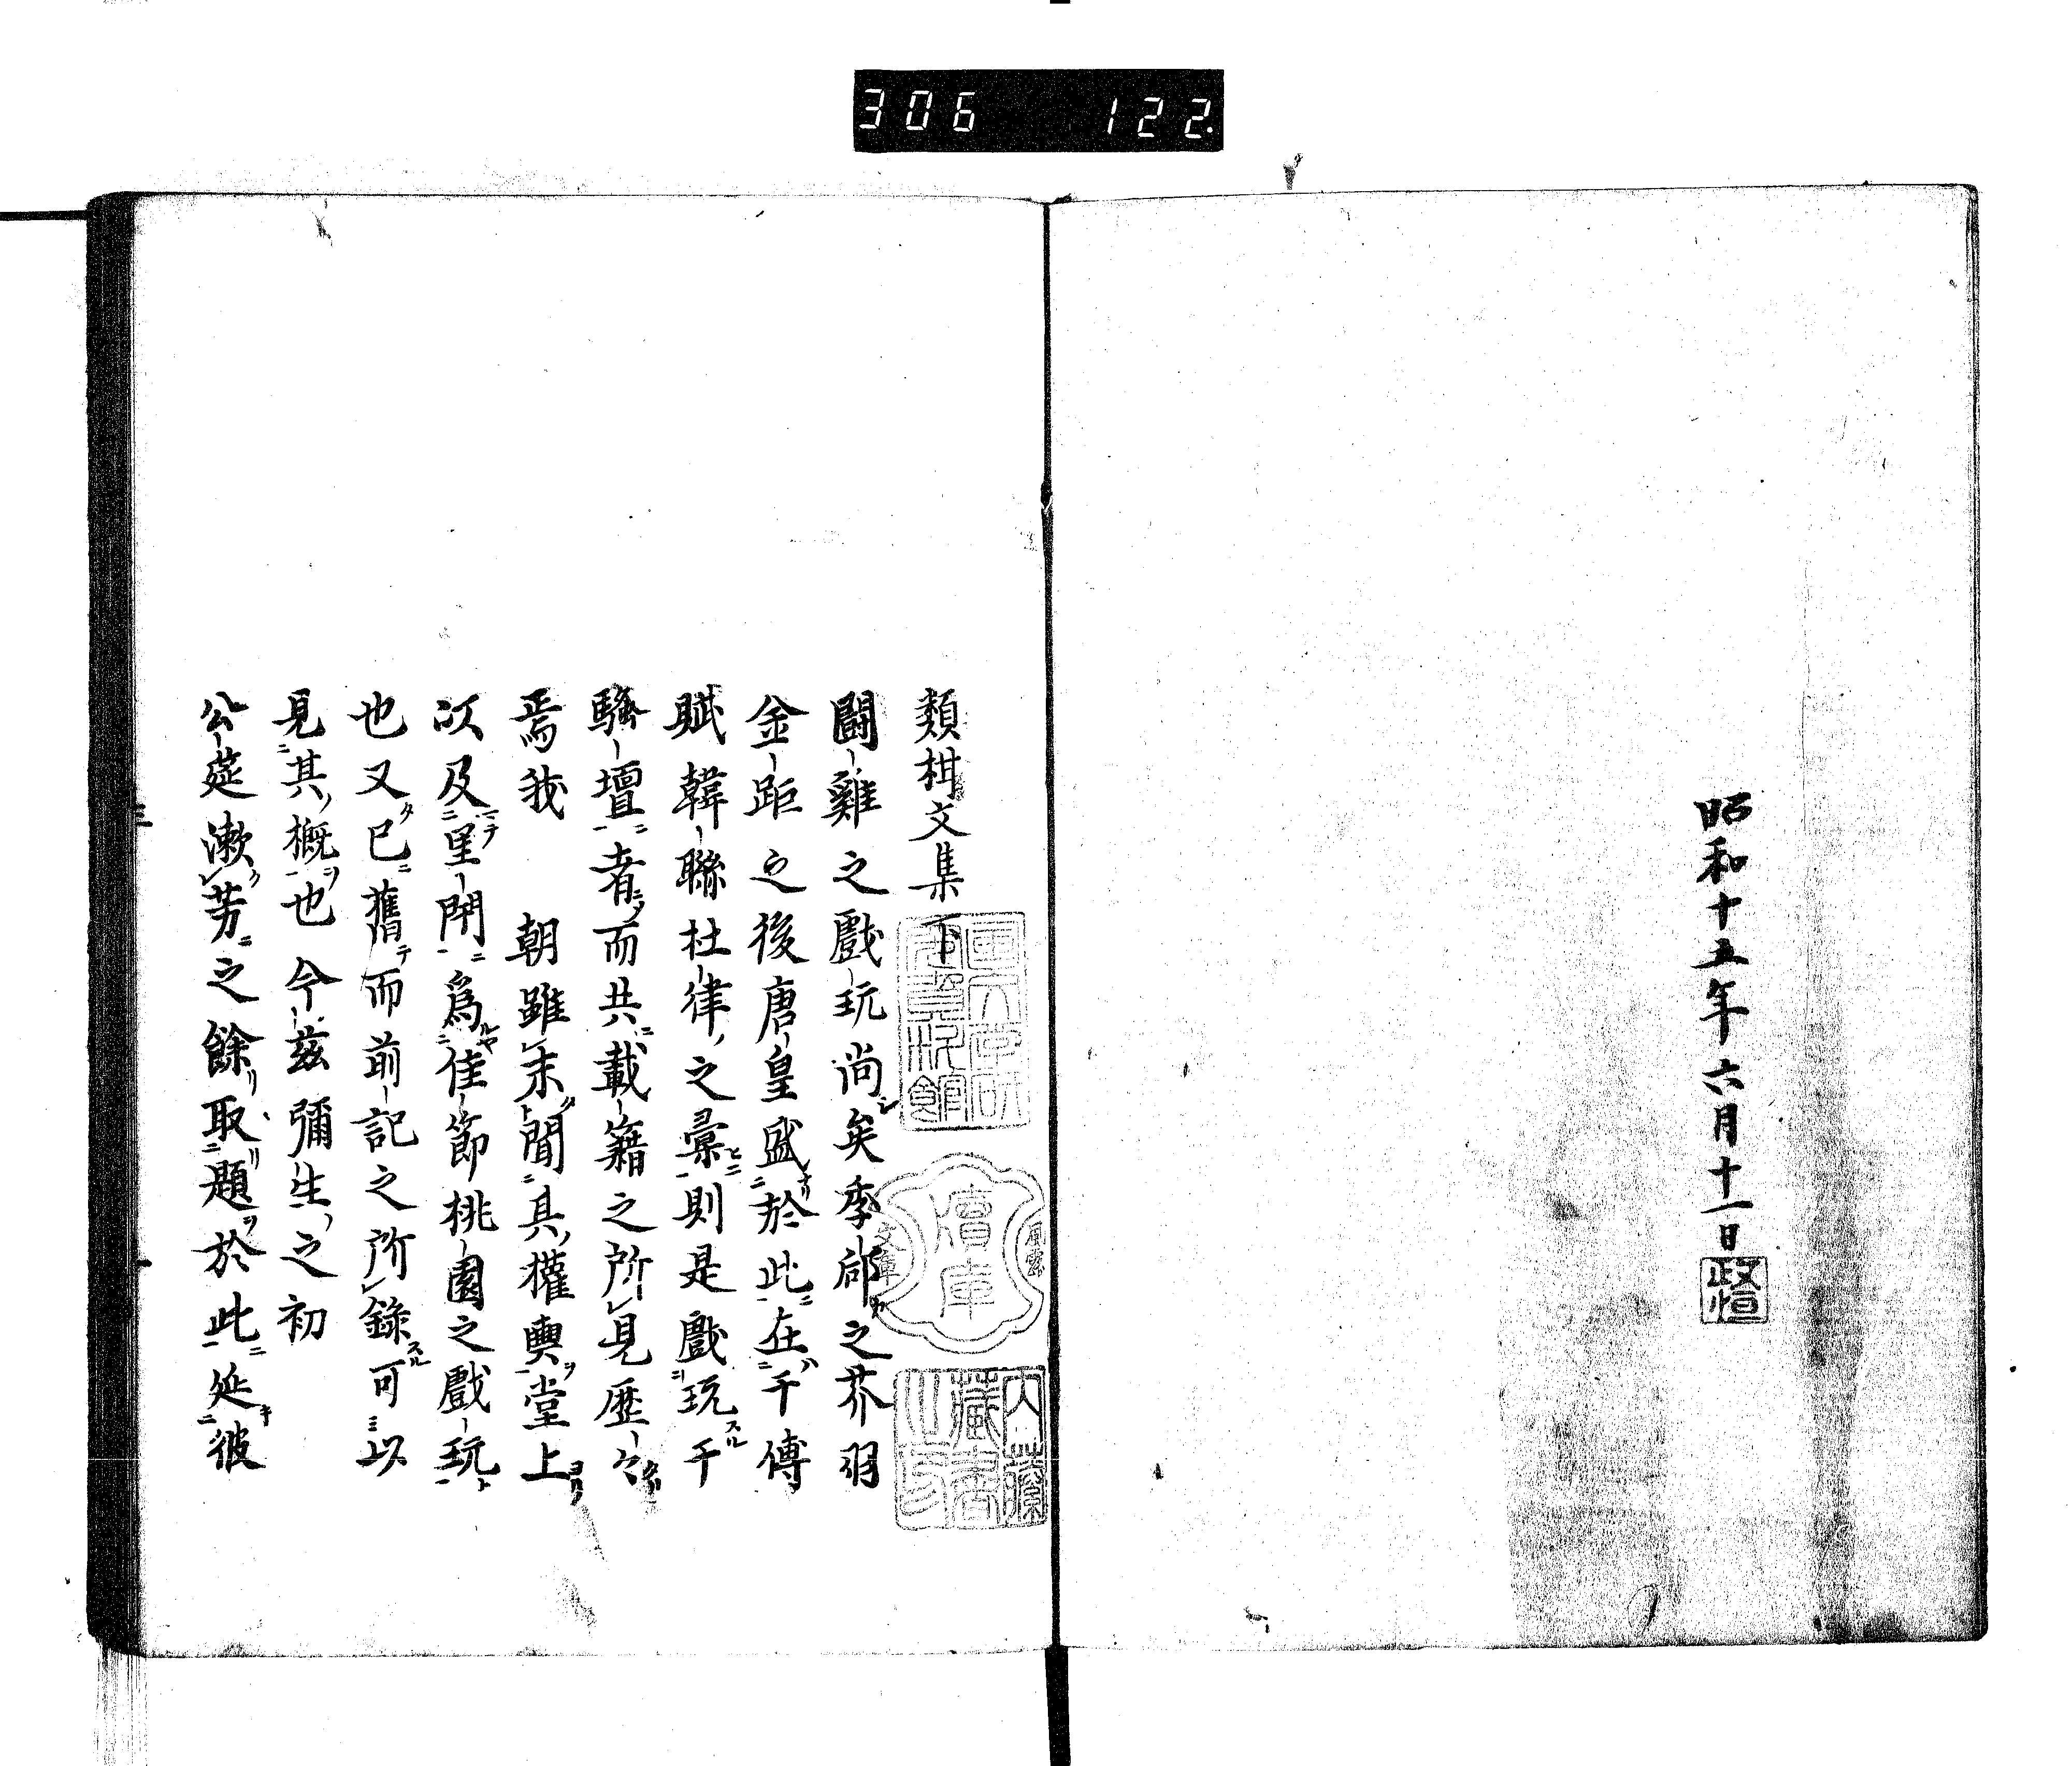 306 122.
昭和十五年六月十一日
政恒
類柑文集下
鬪雞之戲玩尚矣季郈之芥羽
金距之後唐皇盛於此在千傳
賦韓聯杜律之彙則是戲玩千
騷壇者而共載籍之所見歷々
焉我 朝雖未聞其權輿堂上
以及里閈爲佳節桃園之戲玩
也又已舊而前記之所錄可以
見其概也今茲彌生之初
公莚漱芳之餘取題於此延彼
瀆庫
文庫
内藤
藏書